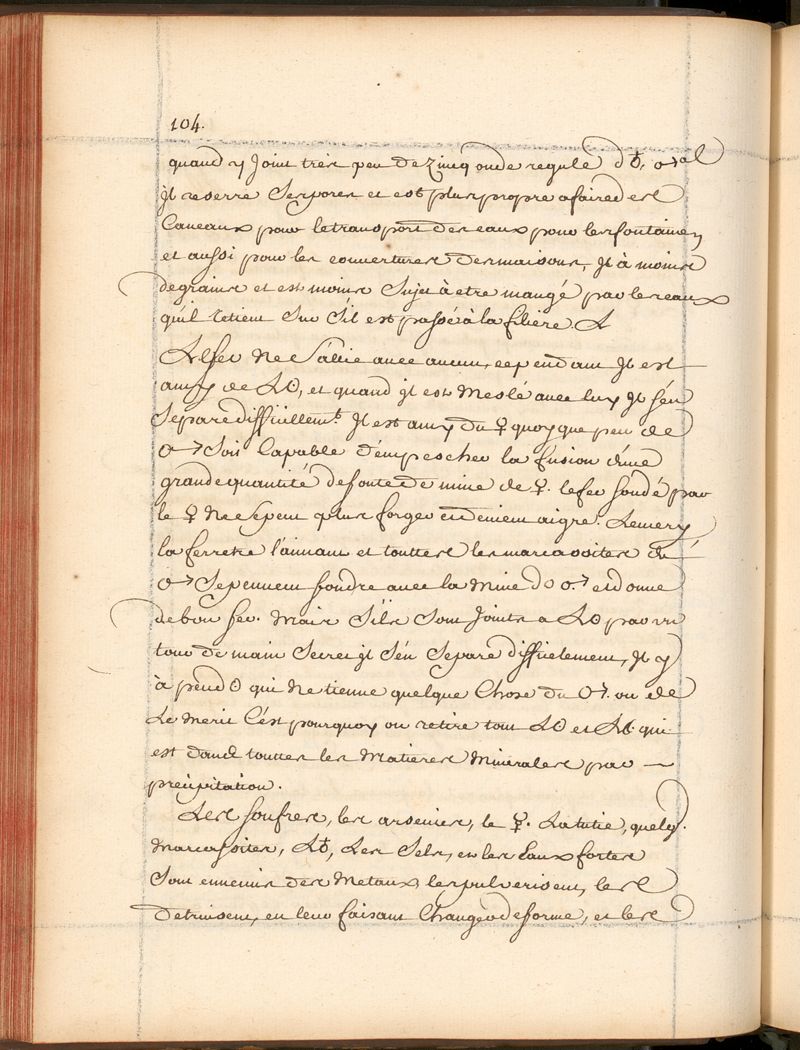 104.
quand y Joint tres peu de Zinq ou de regule d♁, ♂al
Jl reserre Ses pores et est plus propre a faire des
Caneaux pour le transport des eaux pour les fontaines
et aussi pour les couvertures des maisons, Jl à moins
de grains et est moins Sujet à etre mangé par les eaux
qu'il retient Sur S'il est passé à la filiere.
Le fer ne S'allie avec aucun, cependant Jl est
amy de L☉, et quand jl est Meslé avec luy Jl S'en
Separe difficillemt. Jl est amy du ☿ quoy que peu de
♂ Soit Capable d'empescher la fusion d'une
grande quantité de fonte de mine de ♀. le fer fondé par
le ♀ Ne Se peut plus forger et devient aigre. Lemery
la ferrette l'aimant et touttes les marcassites du
♂ Se peuvent fondre avec la Mine d ♂ et donne
de bon fer. Mais S'ils Sont Joints a L☉ par un
tour de main Secret jl S'en Separe difficilement, Jl y
à peu d☉ qui Ne tienne quelque Chose du ♂. ou de
L'Emeril C'est pourquoy on retire tout L☉ et qui
est dans touttes les Matieres Minerales par —
precipitation.
Les soufres, les arsenics, le ☿. La tutie, quelq.
Marcassites, L♁, Les Sels, et les Eaux fortes
Sont ennemis des Metaux, les pulverisent, les
detruisent, en leur faisant Changer de forme, et les